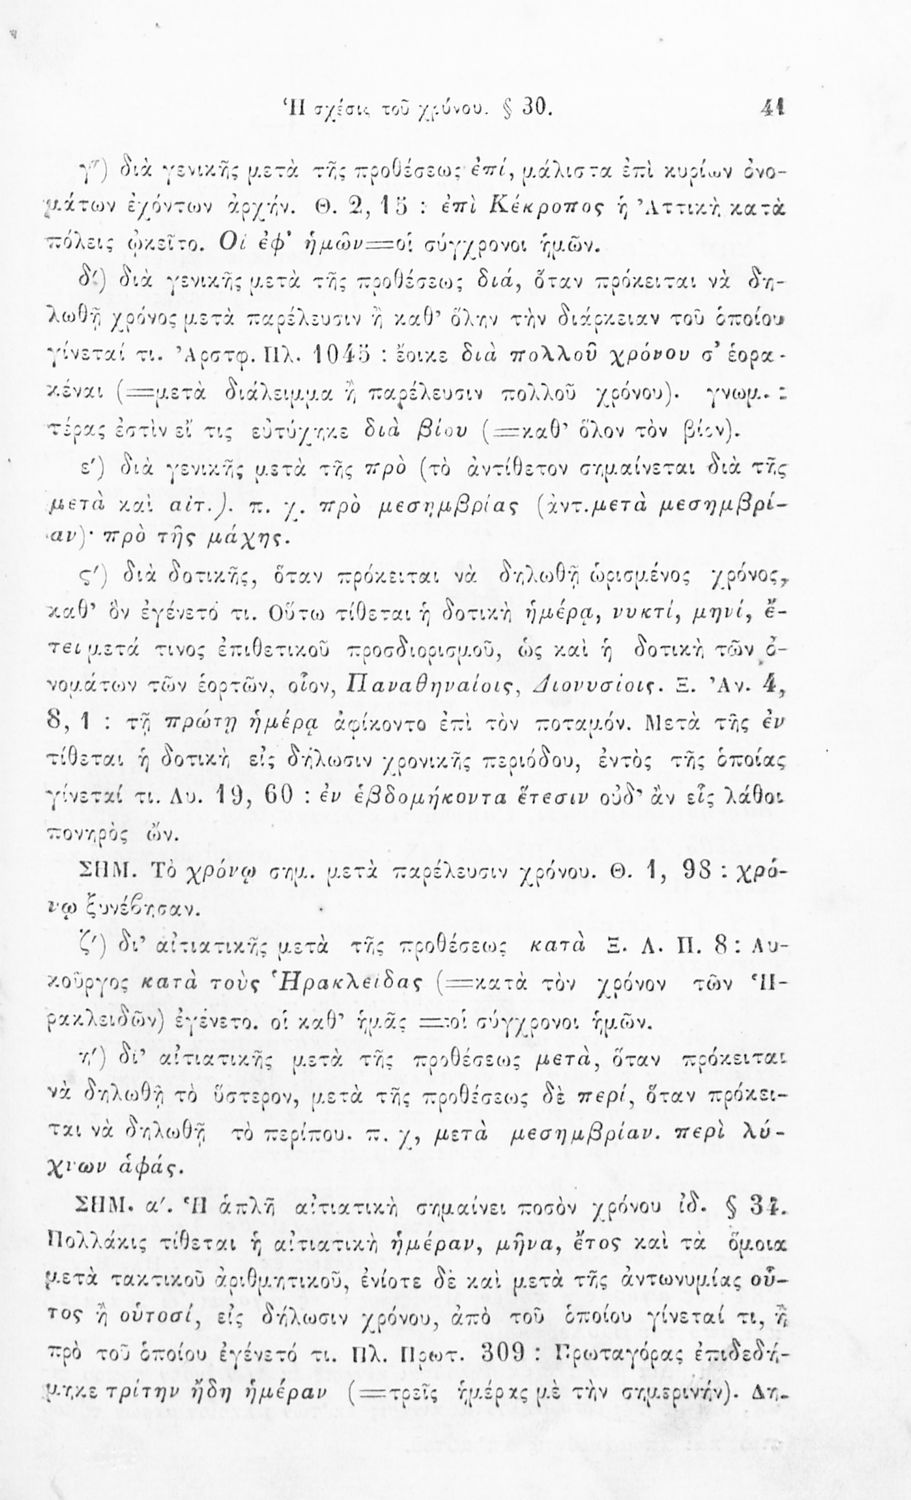 Ἡ σχέσις τοῦ χρόνου. § 30. 41
γ′) διὰ γενικῆς μετὰ τῆς προθέσεως ἐπί, μάλιστα ἐπὶ κυρίων ὀνο-
μάτων ἐχόντων ἀρχήν. Θ. 2, 15 : ἐπὶ Κέκροπος ἡ Ἀττικὴ κατὰ
πόλεις ᾠκεῖτο. Οἱ ἐφ' ἡμῶν=οἱ σύγχρονοι ἡμῶν.
δ′) διὰ γενικῆς μετὰ τῆς προθέσεως διά, ὅταν πρόκειται νὰ δη-
λωθῇ χρόνος μετὰ παρέλευσιν ἢ καθ' ὅλην τὴν διάρκειαν τοῦ ὁποίου
γίνεταί τι. Ἀρστφ. Πλ. 1045 : ἔοικε διὰ πολλοῦ χρόνου σ' ἑορα-
κέναι (=μετὰ διάλειμμα ἢ παρέλευσιν πολλοῦ χρόνου). γνωμ. :
τέρας ἐστὶν εἴ τις εὐτύχηκε διὰ βίου (=καθ' ὅλον τὸν βίον).
ε′) διὰ γενικῆς μετὰ τῆς πρὸ (τὸ ἀντίθετον σημαίνεται διὰ τῆς
μετὰ καὶ αἰτ.). π. χ. πρὸ μεσημβρίας (ἀντ. μετὰ μεσημβρί-
αν)· πρὸ τῆς μάχης.
ς′) διὰ δοτικῆς, ὅταν πρόκειται νὰ δηλωθῇ ὡρισμένος χρόνος,
καθ' ὃν ἐγένετό τι. Οὕτω τίθεται ἡ δοτικὴ ἡμέρᾳ, νυκτί, μηνί, ἔ-
τει μετά τινος ἐπιθετικοῦ προσδιορισμοῦ, ὡς καὶ ἡ δοτικὴ τῶν ὀ-
νομάτων τῶν ἑορτῶν, οἷον, Παναθηναίοις, Διονυσίοις. Ξ. Ἀν. 4,
8, 1 : τῇ πρώτῃ ἡμέρᾳ ἀφίκοντο ἐπὶ τὸν ποταμόν. Μετὰ τῆς ἐν
τίθεται ἡ δοτικὴ εἰς δήλωσιν χρονικῆς περιόδου, ἐντὸς τῆς ὁποίας
γίνεταί τι. Λυ. 19, 60 : ἐν ἑβδομήκοντα ἔτεσιν οὐδ' ἂν εἷς λάθοι
πονηρὸς ὤν.
ΣΗΜ. Τὸ χρόνῳ σημ. μετὰ παρέλευσιν χρόνου. Θ. 1, 98 : χρό-
νῳ ξυνέβησαν.
ζ′) δι' αἰτιατικῆς μετὰ τῆς προθέσεως κατὰ Ξ. Λ. Π. 8 : Λυ-
κοῦργος κατὰ τοὺς Ἡρακλείδας (=κατὰ τὸν χρόνον τῶν Ἡ-
ρακλειδῶν) ἐγένετο. οἱ καθ' ἡμᾶς =οἱ σύγχρονοι ἡμῶν.
η′) δι' αἰτιατικῆς μετὰ τῆς προθέσεως μετά, ὅταν πρόκειται
νὰ δηλωθῇ τὸ ὕστερον, μετὰ τῆς προθέσεως δὲ περί, ὅταν πρόκει-
ται νὰ δηλωθῇ τὸ περίπου. π. χ, μετὰ μεσημβρίαν. περὶ λύ-
χνων ἁφάς.
ΣΗΜ. α′. Ἡ ἁπλῆ αἰτιατικὴ σημαίνει ποσὸν χρόνου ἰδ. § 34.
Πολλάκις τίθεται ἡ αἰτιατικὴ ἡμέραν, μῆνα, ἔτος καὶ τὰ ὅμοια
μετὰ τακτικοῦ ἀριθμητικοῦ, ἐνίοτε δὲ καὶ μετὰ τῆς ἀντωνυμίας οὗ-
τος ἢ οὑτοσί, εἰς δήλωσιν χρόνου, ἀπὸ τοῦ ὁποίου γίνεταί τι, ἢ
πρὸ τοῦ ὁποίου ἐγένετό τι. Πλ. Πρωτ. 309 : Πρωταγόρας ἐπιδεδή-
μηκε τρίτην ἤδη ἡμέραν (=τρεῖς ἡμέρας μὲ τὴν σημερινήν). Δη-